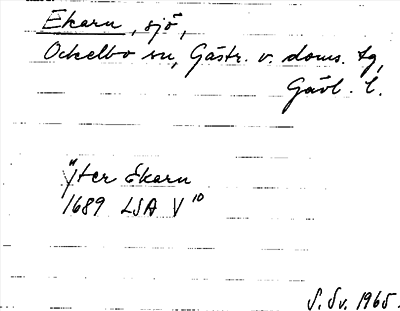 Ekaren, sjö,
Ockelbo sn, Gästr. v. doms. tg,
Gävl. l.
"Yter Ekarn
1689 LSA V 10
S. Sv. 1965.